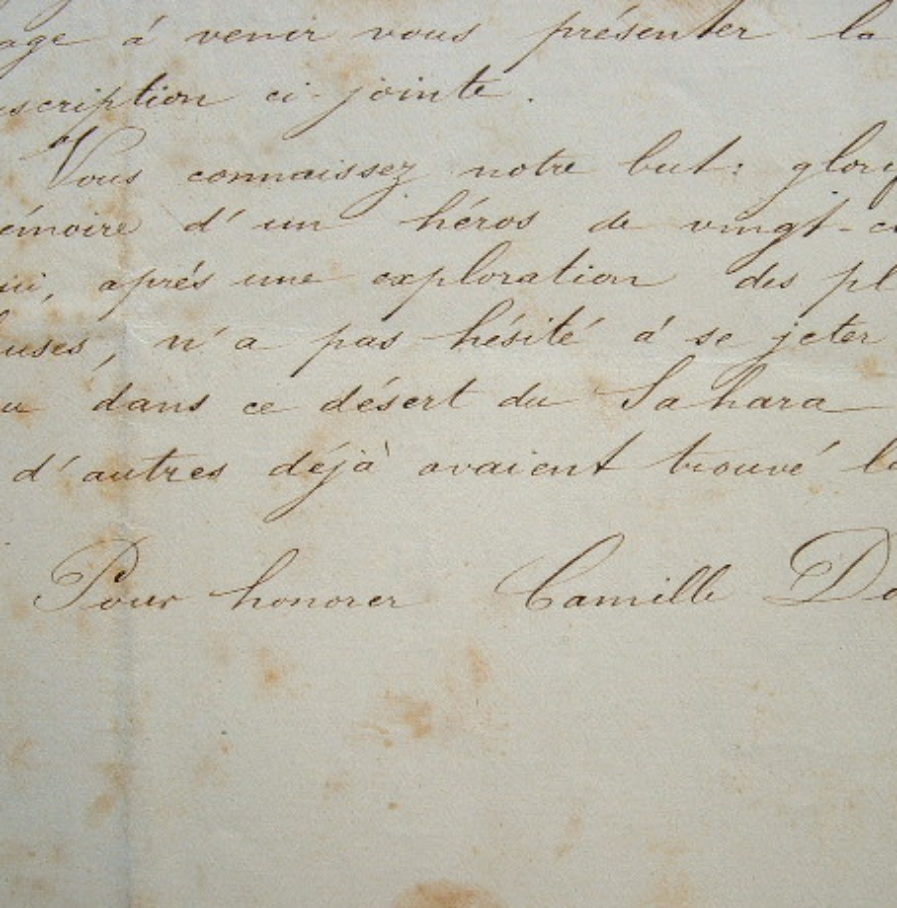 age à venir vous présenter la
scription ci-jointe.
Vous connaissez notre but: glorif
émoire d'un héros de vingt-c
ui, aprés une exploration des pl
uses, n'a pas hésité à se jeter
u dans ce désert du Sahara
d'autres déjà avaient trouvé la
Pour honorer Camille Do